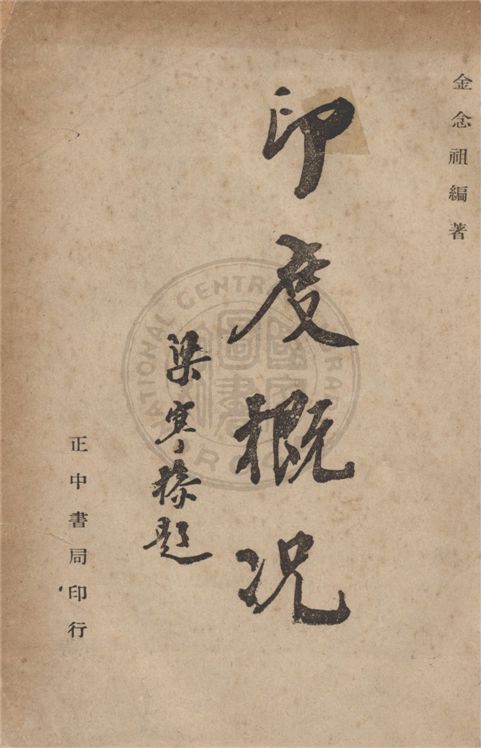 金念祖編著
印度概况
梁寒操題
正中書局印行
NATIONAL CENTRAL LIBRARY
國家圖書館